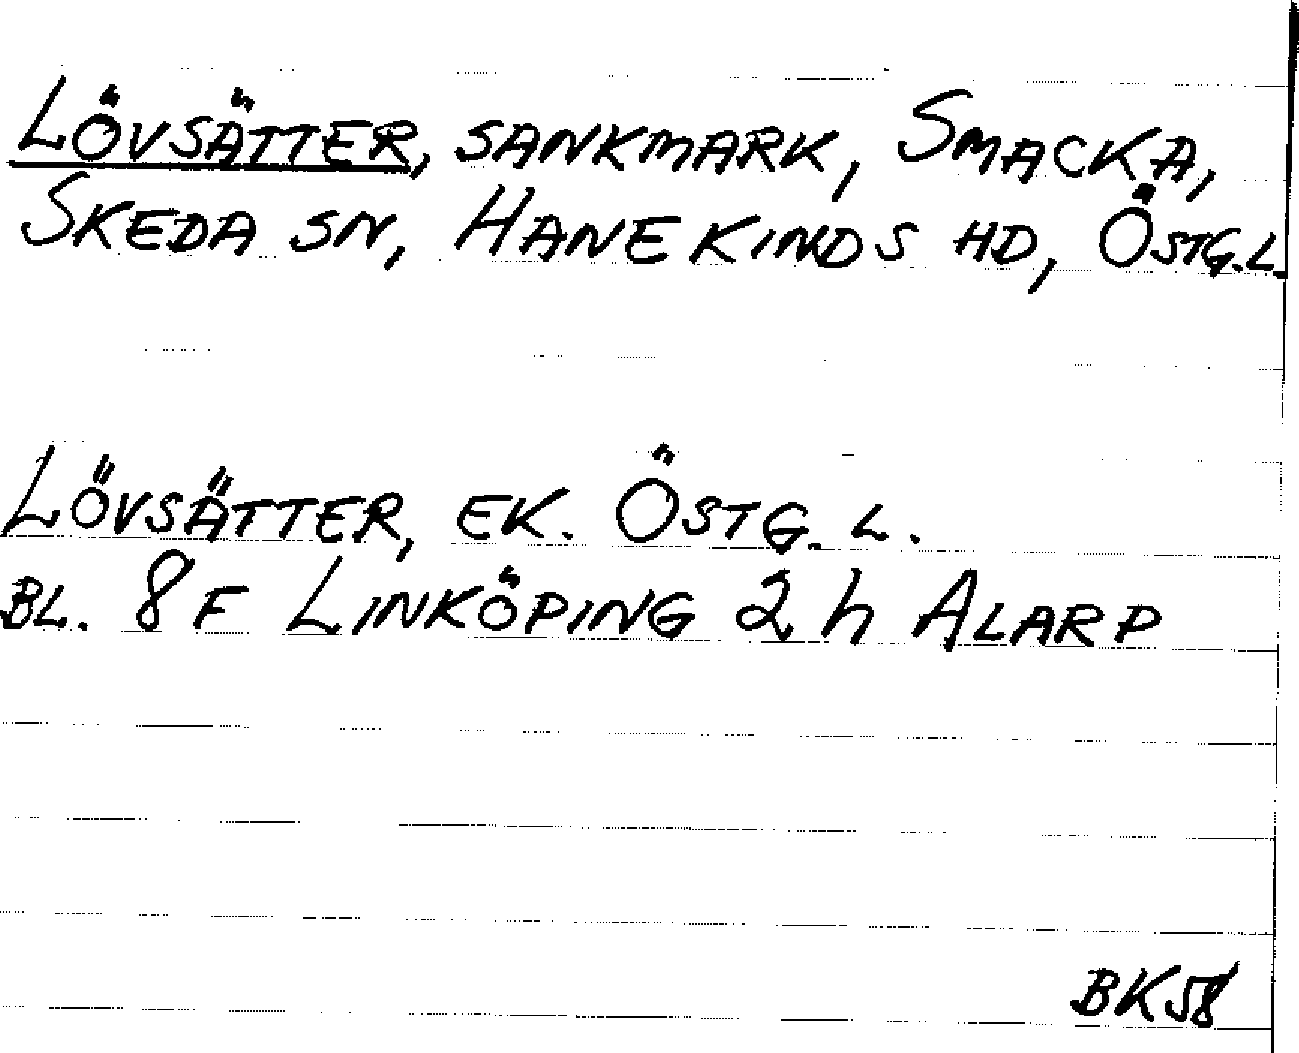 LÖVSÄTTER, SANKMARK, SMACKA,
SKEDA SN, HANEKINDS HD, ÖSTG.L.
LÖVSÄTTER, EK. ÖSTG. L.
BL. 8F LINKÖPING 2h ALARP
BK58